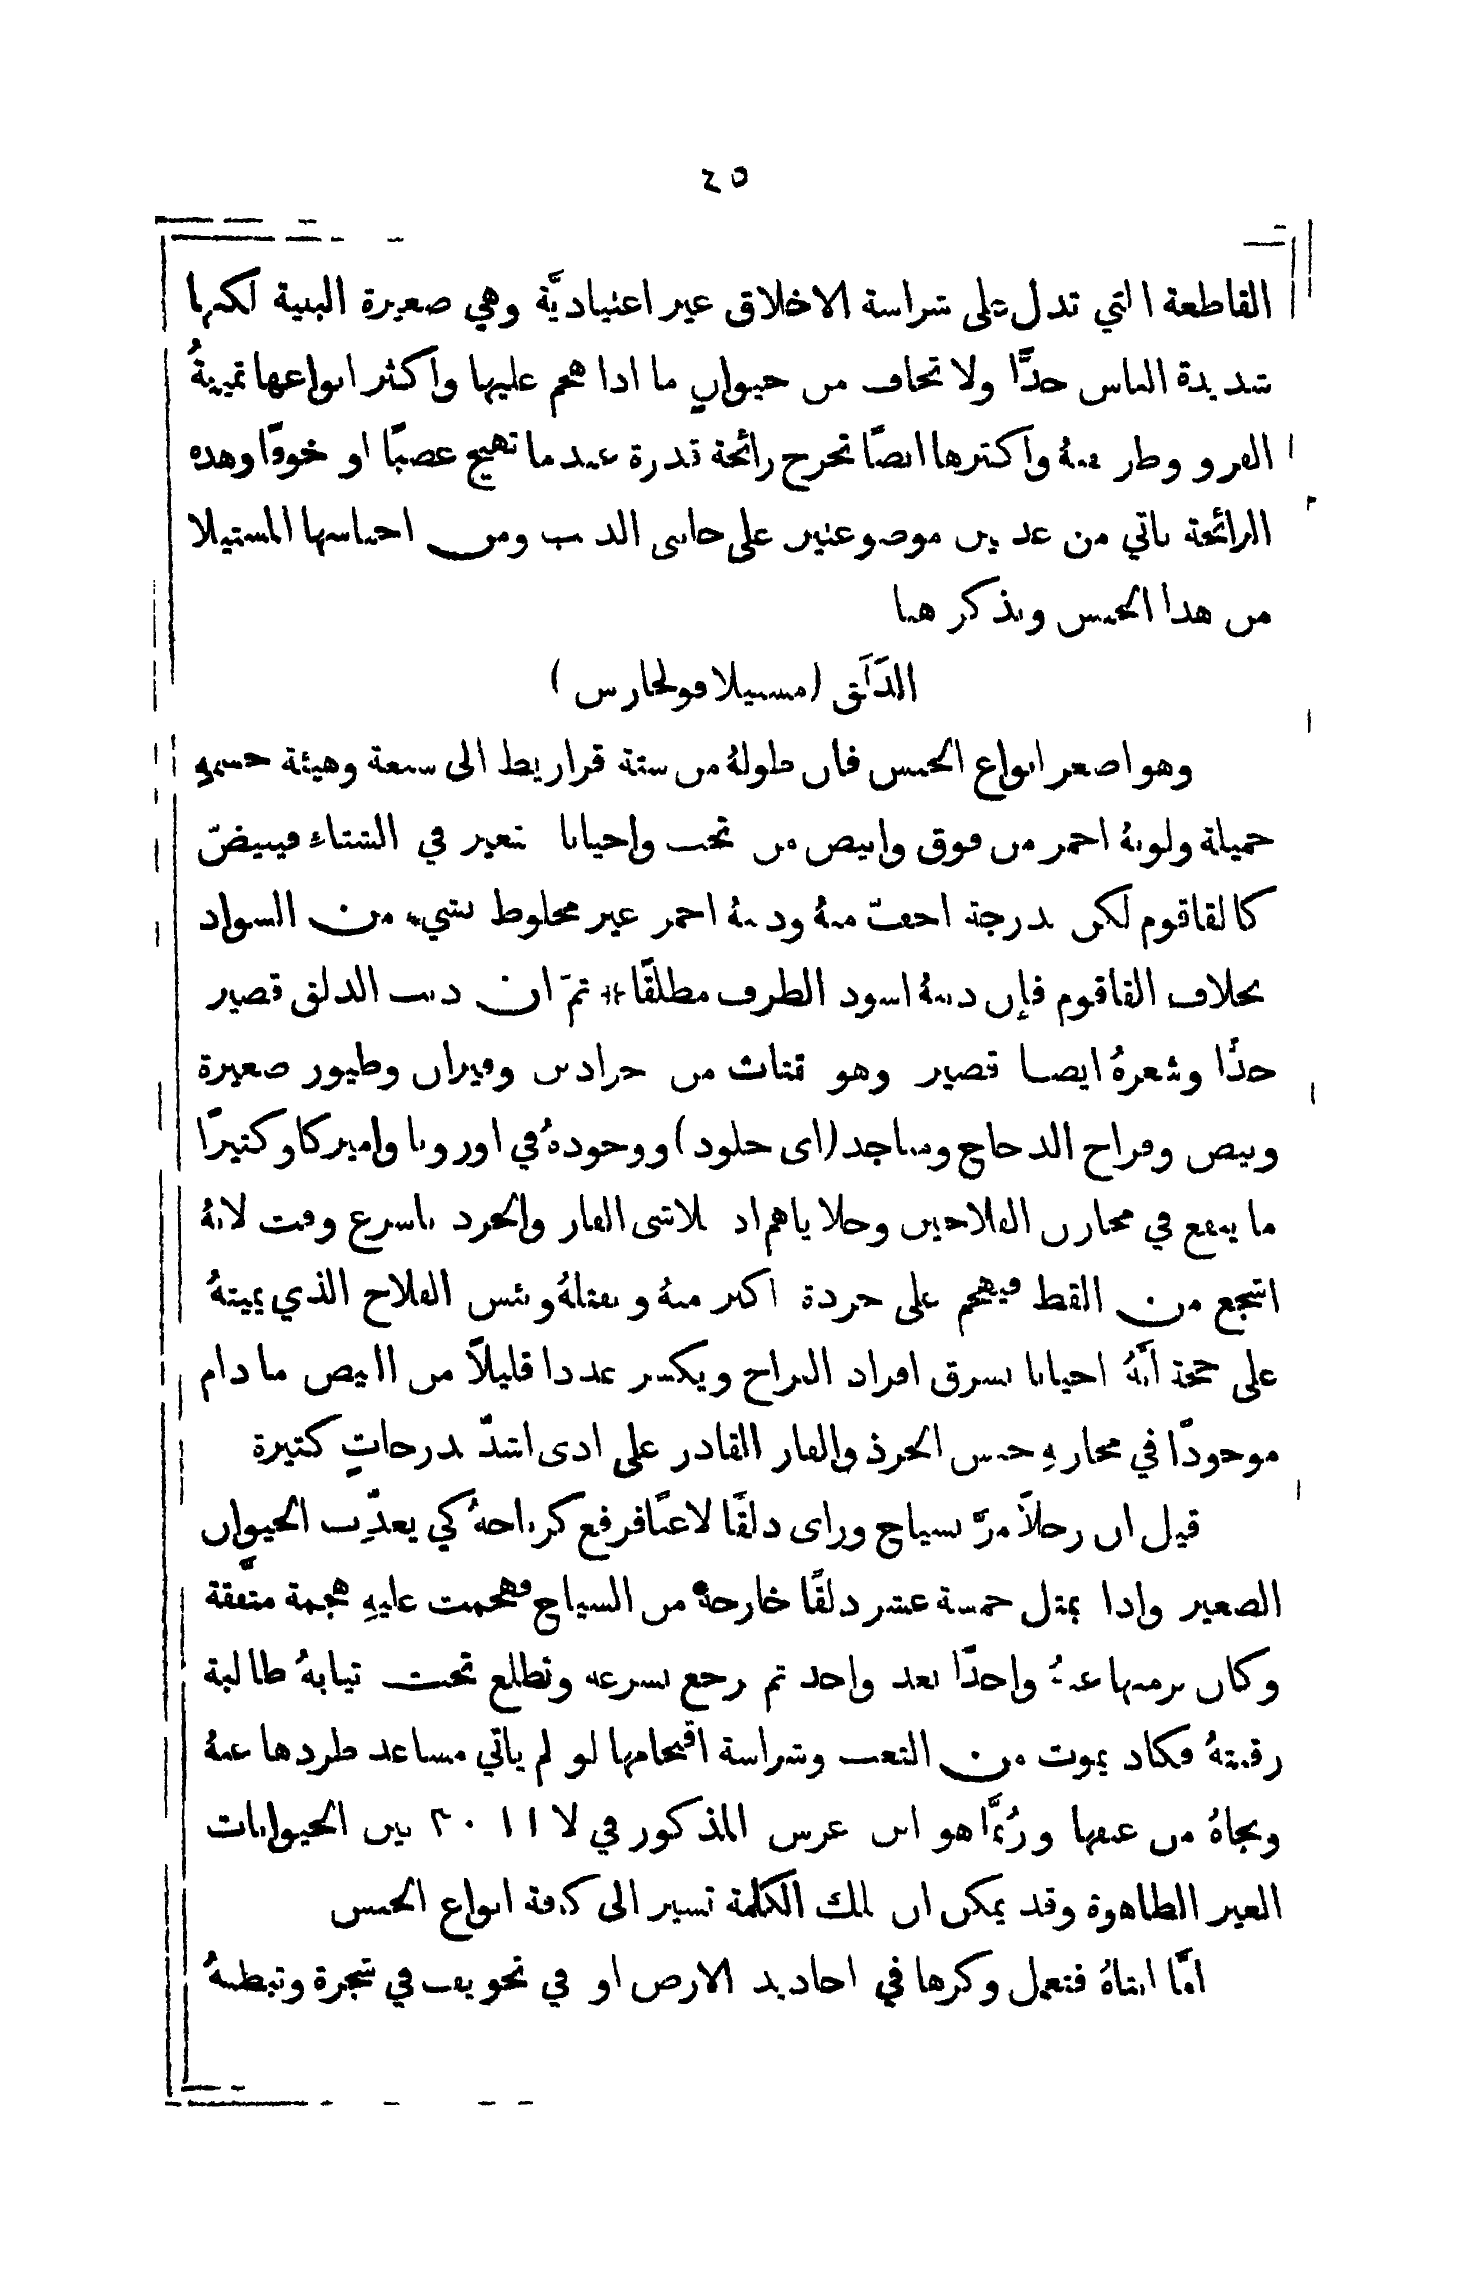 ٤٥
القاطعة التي تدل على شراسة الاخلاق غير اعتياديَّة وهي صغيرة البنية لكنها
شديدة الباس جدًّا ولا تخاف من حيوانٍ ما اذا هجم عليها واكثر انواعها ثمينةُ
الفرو وطريفتهُ واكثرها ايضًا تخرج رائحة قذرة عندما تهيج غصبًا او خوفًا وهذه
الرائحة تاتي من غديتين موضوعتين على جانبي الذنب ومن اجناسها المستيلا
من هذا الجنس ونذكر هنا
الدَلَق (مستيلا فولجارس)
وهو اصغر انواع الجنس فان طولهُ من ستة قراريط الى سبعة وهيئة جسمهِ
جميلة ولونهُ احمر من فوق وابيض من تحت واحيانا يتغير في الشتاء فيبيضّ
كالقاقوم لكن بدرجة اخفّ منهُ وذنبهُ احمر غير مخلوط بشيء من السواد
بخلاف القاقوم فإن ذنبهُ اسود الطرف مطلقًا * ثمَ ان ذنب الدلق قصير
جدًّا وشعرهُ ايضا قصير وهو يقتات من جراذين وفيران وطيور صغيرة
وبيض وفراخ الدجاج ومناجد (اى خلود) ووجودهُ في اوروبا واميركا وكثيرًا
ما ينفع في مخازن الفلاحين وخلاياهم اذ يلاشى الفار والجرذ باسرع وقت لانهُ
اشجع من القط فيهجم على جرذة اكبر منهُ ويقتلهُ وبئس الفلاح الذي يميتهُ
على حجة انَّهُ احيانا يسرق افراد الفراخ ويكسر عددا قليلاً من البيض ما دام
موجودًا في مخازنهِ جنس الجرذ والفار القادر على اذى اشدّ بدرجاتٍ كثيرة
قيل ان رجلاً مرَّ بسياج وراى دلقًا لاعبًا فرفع كرباجهُ كي يعذّب الحيوان
الصغير واذا بمثل خمسة عشر دلقًا خارجة من السياج فهجمت عليهِ هجمة متفقة
وكان يرميها عنهُ واحدًا بعد واحد ثم رجع بسرعه وتطلع تحت ثيابهُ طالبة
رقبتهُ فكاد يموت من التعب وشراسة اقتحامها لو لم ياتي مساعد طردها عنهُ
ونجاهُ من عنفها ورُبَّما هو ابن عرس المذكور في لا ١١ ٠ ٢٩ بين الحيوانات
الغير الطاهرة وقد يمكن ان تلك الكلمة تشير الى كافة انواع الجنس
امَّا انثاهُ فتعمل وكرها في اخاديد الارض او في تجويف في شجرة وتبطنهُ